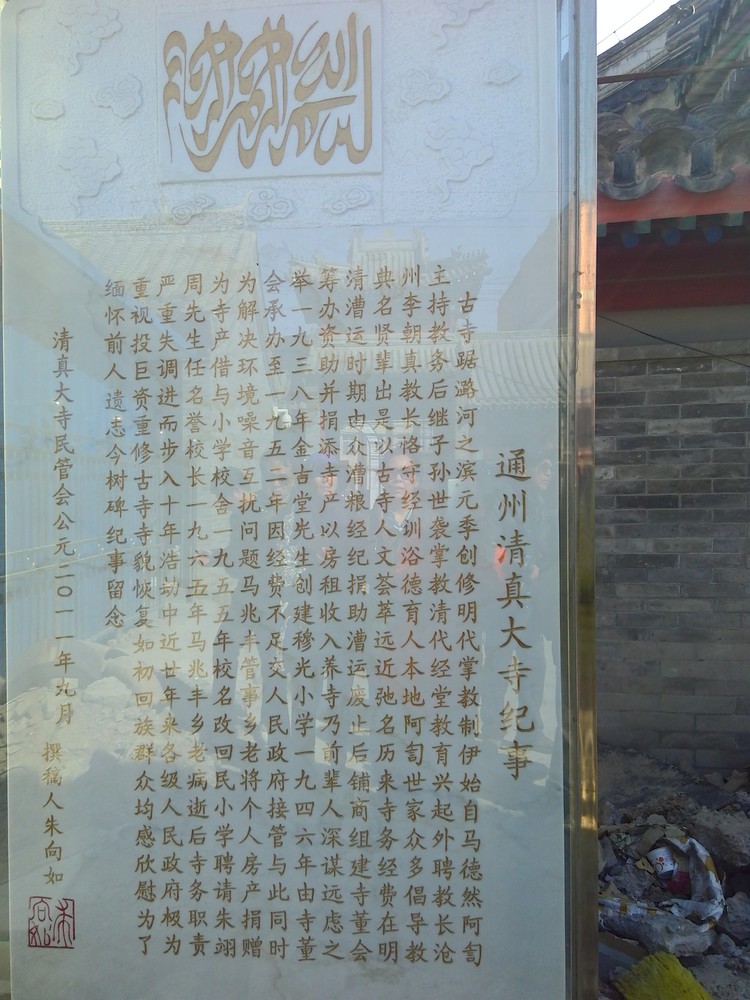 通州清真大寺纪事
古寺踞潞河之滨元季创修明代掌教制伊始自马德然阿訇
主持教务后继子孙世袭掌教清代经堂教育兴起外聘教长沧
州李朝真教长恪守经训浴德育人本地阿訇世家众多倡导教
典名贤辈出是以古寺人文荟萃远近驰名历来寺务经费在明
清漕运时期由众漕粮经纪捐助漕运废止后铺商组建寺董会
筹办资助并捐添寺产以房租收入养寺乃前辈人深谋远虑之
举一九三八年金吉堂先生创建穆光小学一九四六年由寺董
会承办至一九五二年因经费不足交人民政府接管与此同时
为解决环境噪音互扰问题马兆丰管事乡老将个人房产捐赠
为寺产借与小学校舍一九五五年校名改回民小学聘请朱翊
周先生任名誉校长一九六五年马兆丰乡老病逝后寺务职责
严重失调进而步入十年浩动中近廿年来各级人民政府极为
重视投巨资重修古寺寺貌恢复如初回族群众均感欣慰为了
缅怀前人遗志今树碑纪事留念
清真大寺民管会公元二〇一一年九月 撰稿人朱向如